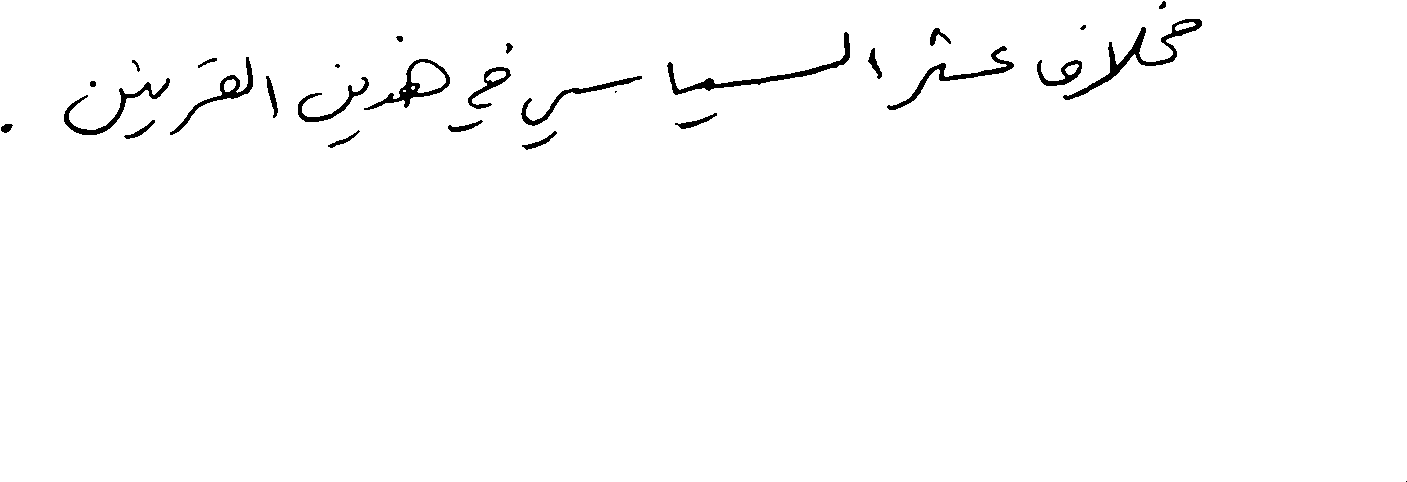 مخلاف عثر السياسي في هذين القرنين .